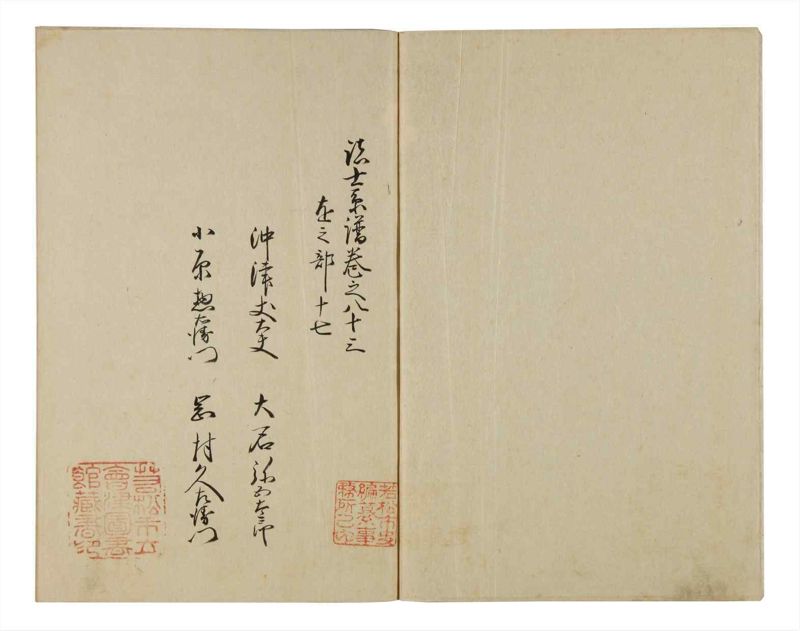 諸士系譜巻之八十三
を之部十七
沖津丈太夫
大石弥五太郎
小原惣左衛門
岡村久左衛門
若松市史
編纂事
務所之印
若松市立
會津圖書
館藏書印